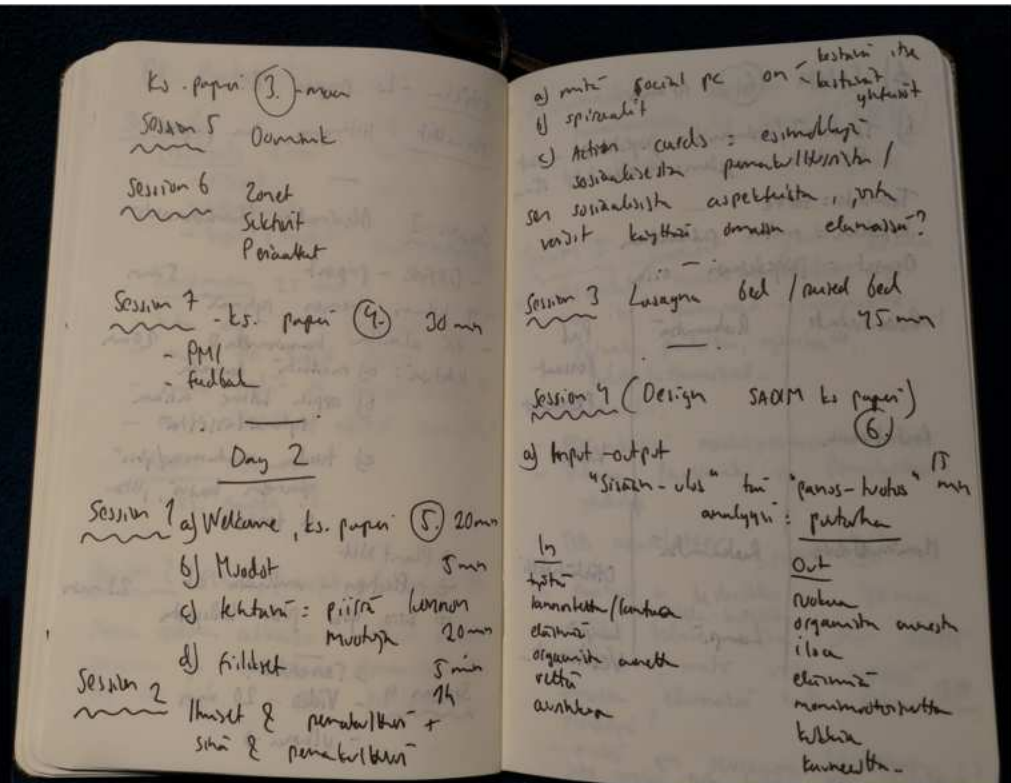 ks. paperi 3.
Session 5 Dominik
Session 6 Zonet
Sektorit
Periaatteet
Session 7 - ks. paperi 4. 30 min
- PMI
- Feedback
Day 2
Session 1 a) Welcome, ks. paperi 5. 20 min
b) Muodot 5 min
c) tehtävä: piirrä luonnon
muotoja 20 min
d) 5 min
Session 2 1h
Ihmiset & permakulttuuri +
sinä & permakulttuuri
a) mitä social pc on - kestävä itse
- kestävät
yhteisöt
b) spiraalit
c) Action cards: esimerkkejä
sosiaalisesta permakulttuurista /
sen sosiaalisista aspekteista, joita
voisit käyttää omassa elämässä?
Session 3 Lasagna bed / raised bed
45 min
Session 4 (Design SADIM ks paperi)
6.
a) Input-output 15
"Sisään-ulos" tai "panos-tuotos" min
analyysi: puutarha
In
työtä
lannoitetta/lantaa
eläimiä
orgaanista ainetta
vettä
aurinkoa
Out
ruokaa
orgaanista ainesta
iloa
eläimiä
monimuotoisuutta
kukkia
kauneutta